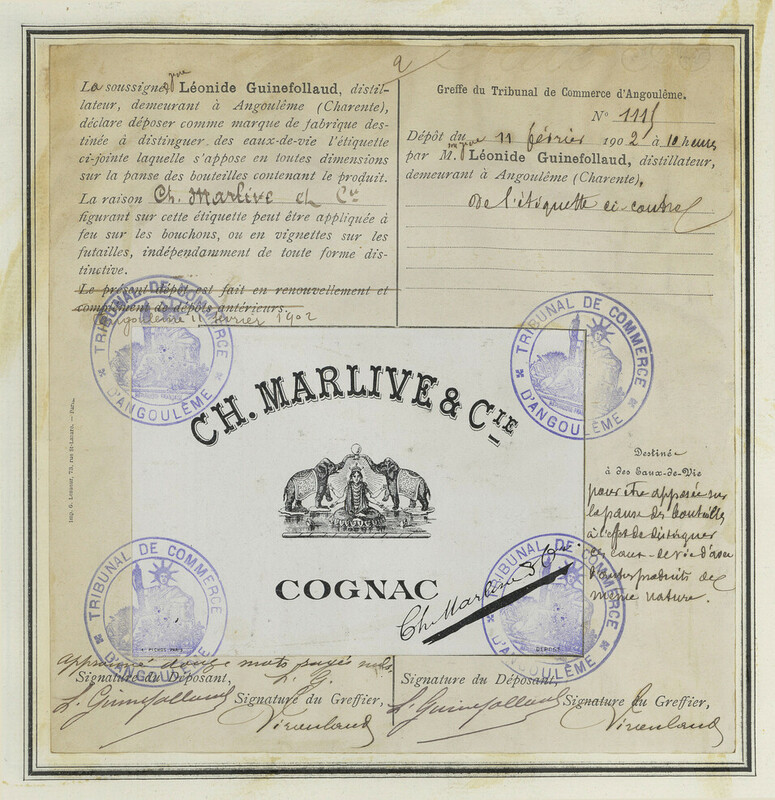 La soussignée Léonide Guinefollaud, distil-
lateur, demeurant à Angoulême (Charente),
déclare déposer comme marque de fabrique des-
tinée à distinguer des eaux-de-vie l'étiquette
ci-jointe laquelle s'appose en toutes dimensions
sur la panse des bouteilles contenant le produit.
La raison Ch. Marlive et Cie
figurant sur cette étiquette peut être appliquée à
feu sur les bouchons, ou en vignettes sur les
futailles, indépendamment de toute forme dis-
tinctive.
Le présent dépôt est fait en renouvellement et
complément de dépôts antérieurs.
Angoulême 11 février 1902
Greffe du Tribunal de Commerce d'Angoulême.
N° 1115
Dépôt du 11 février 1902 à 10 heures
par M. Léonide Guinefollaud, distillateur,
demeurant à Angoulême (Charente),
De l'étiquette ci-contre
TRIBUNAL DE COMMERCE
D'ANGOULÊME
TRIBUNAL DE COMMERCE
D'ANGOULÊME
CH. MARLIVE & CIE
COGNAC
Ch. Marlive & Cie
Destinée
à des Eaux-de-Vie
pour être apposée sur
la panse des bouteilles
à l'effet de distinguer
ces eaux-de-vie d'avec
d'autres produits de
même nature.
TRIBUNAL DE COMMERCE
D'ANGOULÊME
TRIBUNAL DE COMMERCE
D'ANGOULÊME
DÉPOSÉ
mots rayés nuls.
L. G.
Signature du Déposant,
L. Guinefollaud
Signature du Greffier,
Signature du Déposant,
L. Guinefollaud
Signature du Greffier,